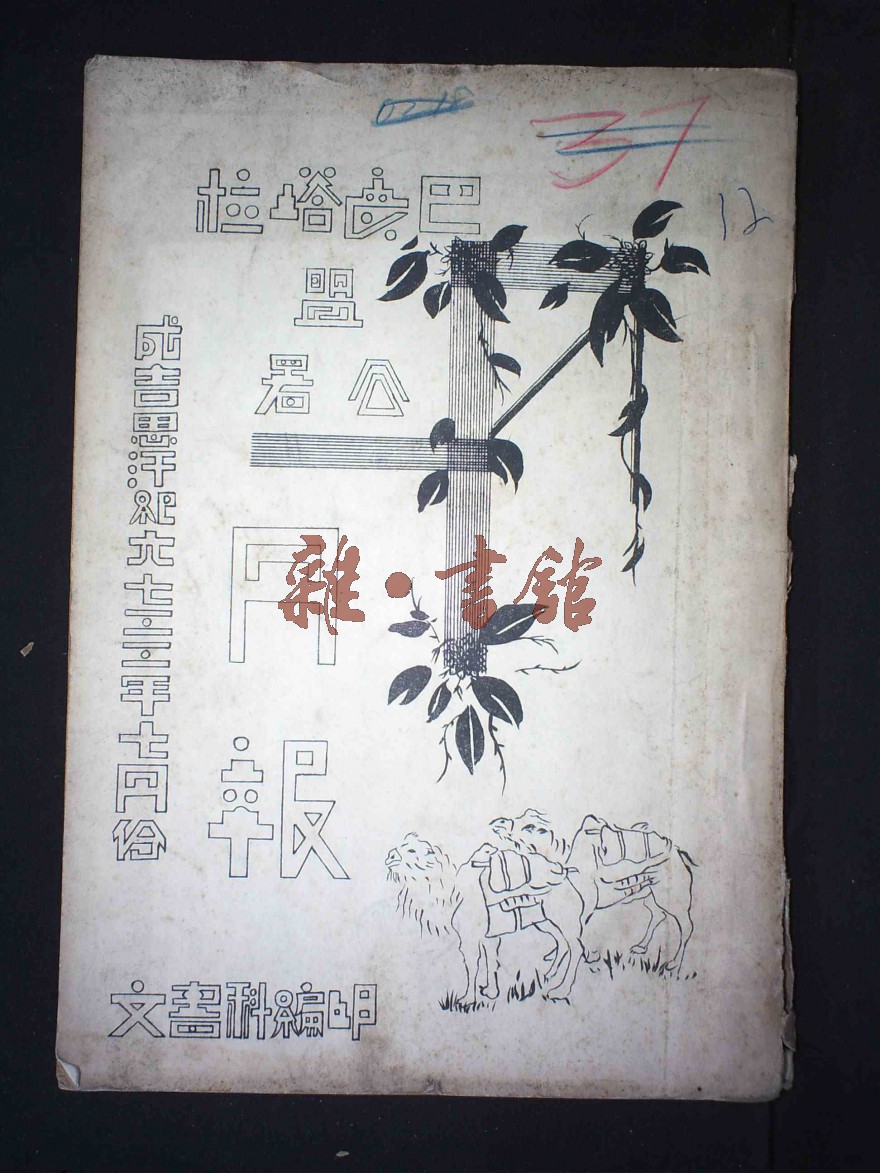 37
12
巴彥塔拉
盟
公署
月報
成吉思汗紀元七三三年七月份
文書科編印
雜·書館